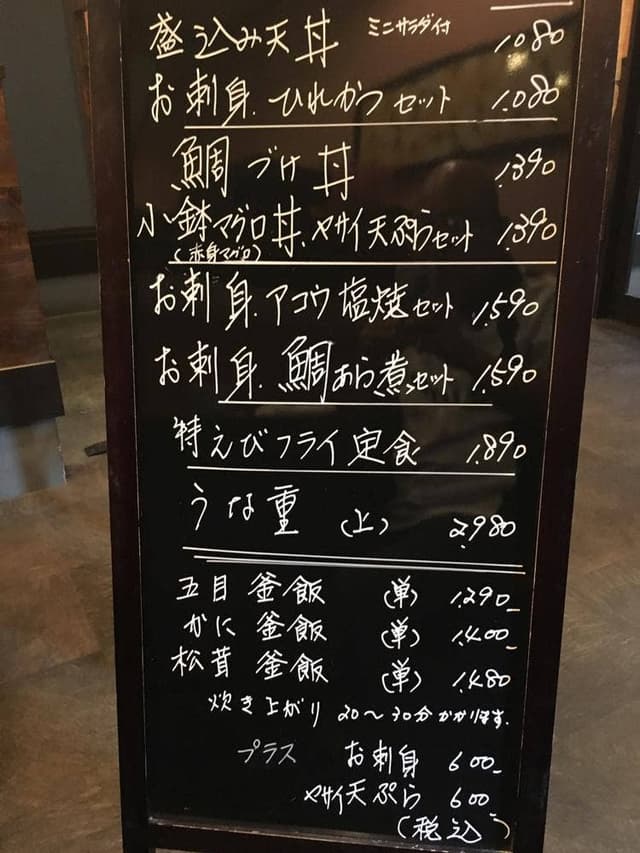 盛込み天丼 ミニサラダ付 1.080
お刺身.ひれかつセット 1.080
鯛づけ丼 1.390
小鉢マグロ丼.ヤサイ天ぷらセット 1.390
(赤身マグロ)
お刺身.アコウ塩焼セット 1.590
お刺身.鯛あら煮セット 1.590
特えびフライ定食 1.890
うな重 (上) 2.980
五目釜飯 (単) 1.290
かに釜飯 (単) 1.400
松茸釜飯 (単) 1.480
炊き上がり 20〜30分かかります.
プラス お刺身 600
ヤサイ天ぷら 600
(税込)